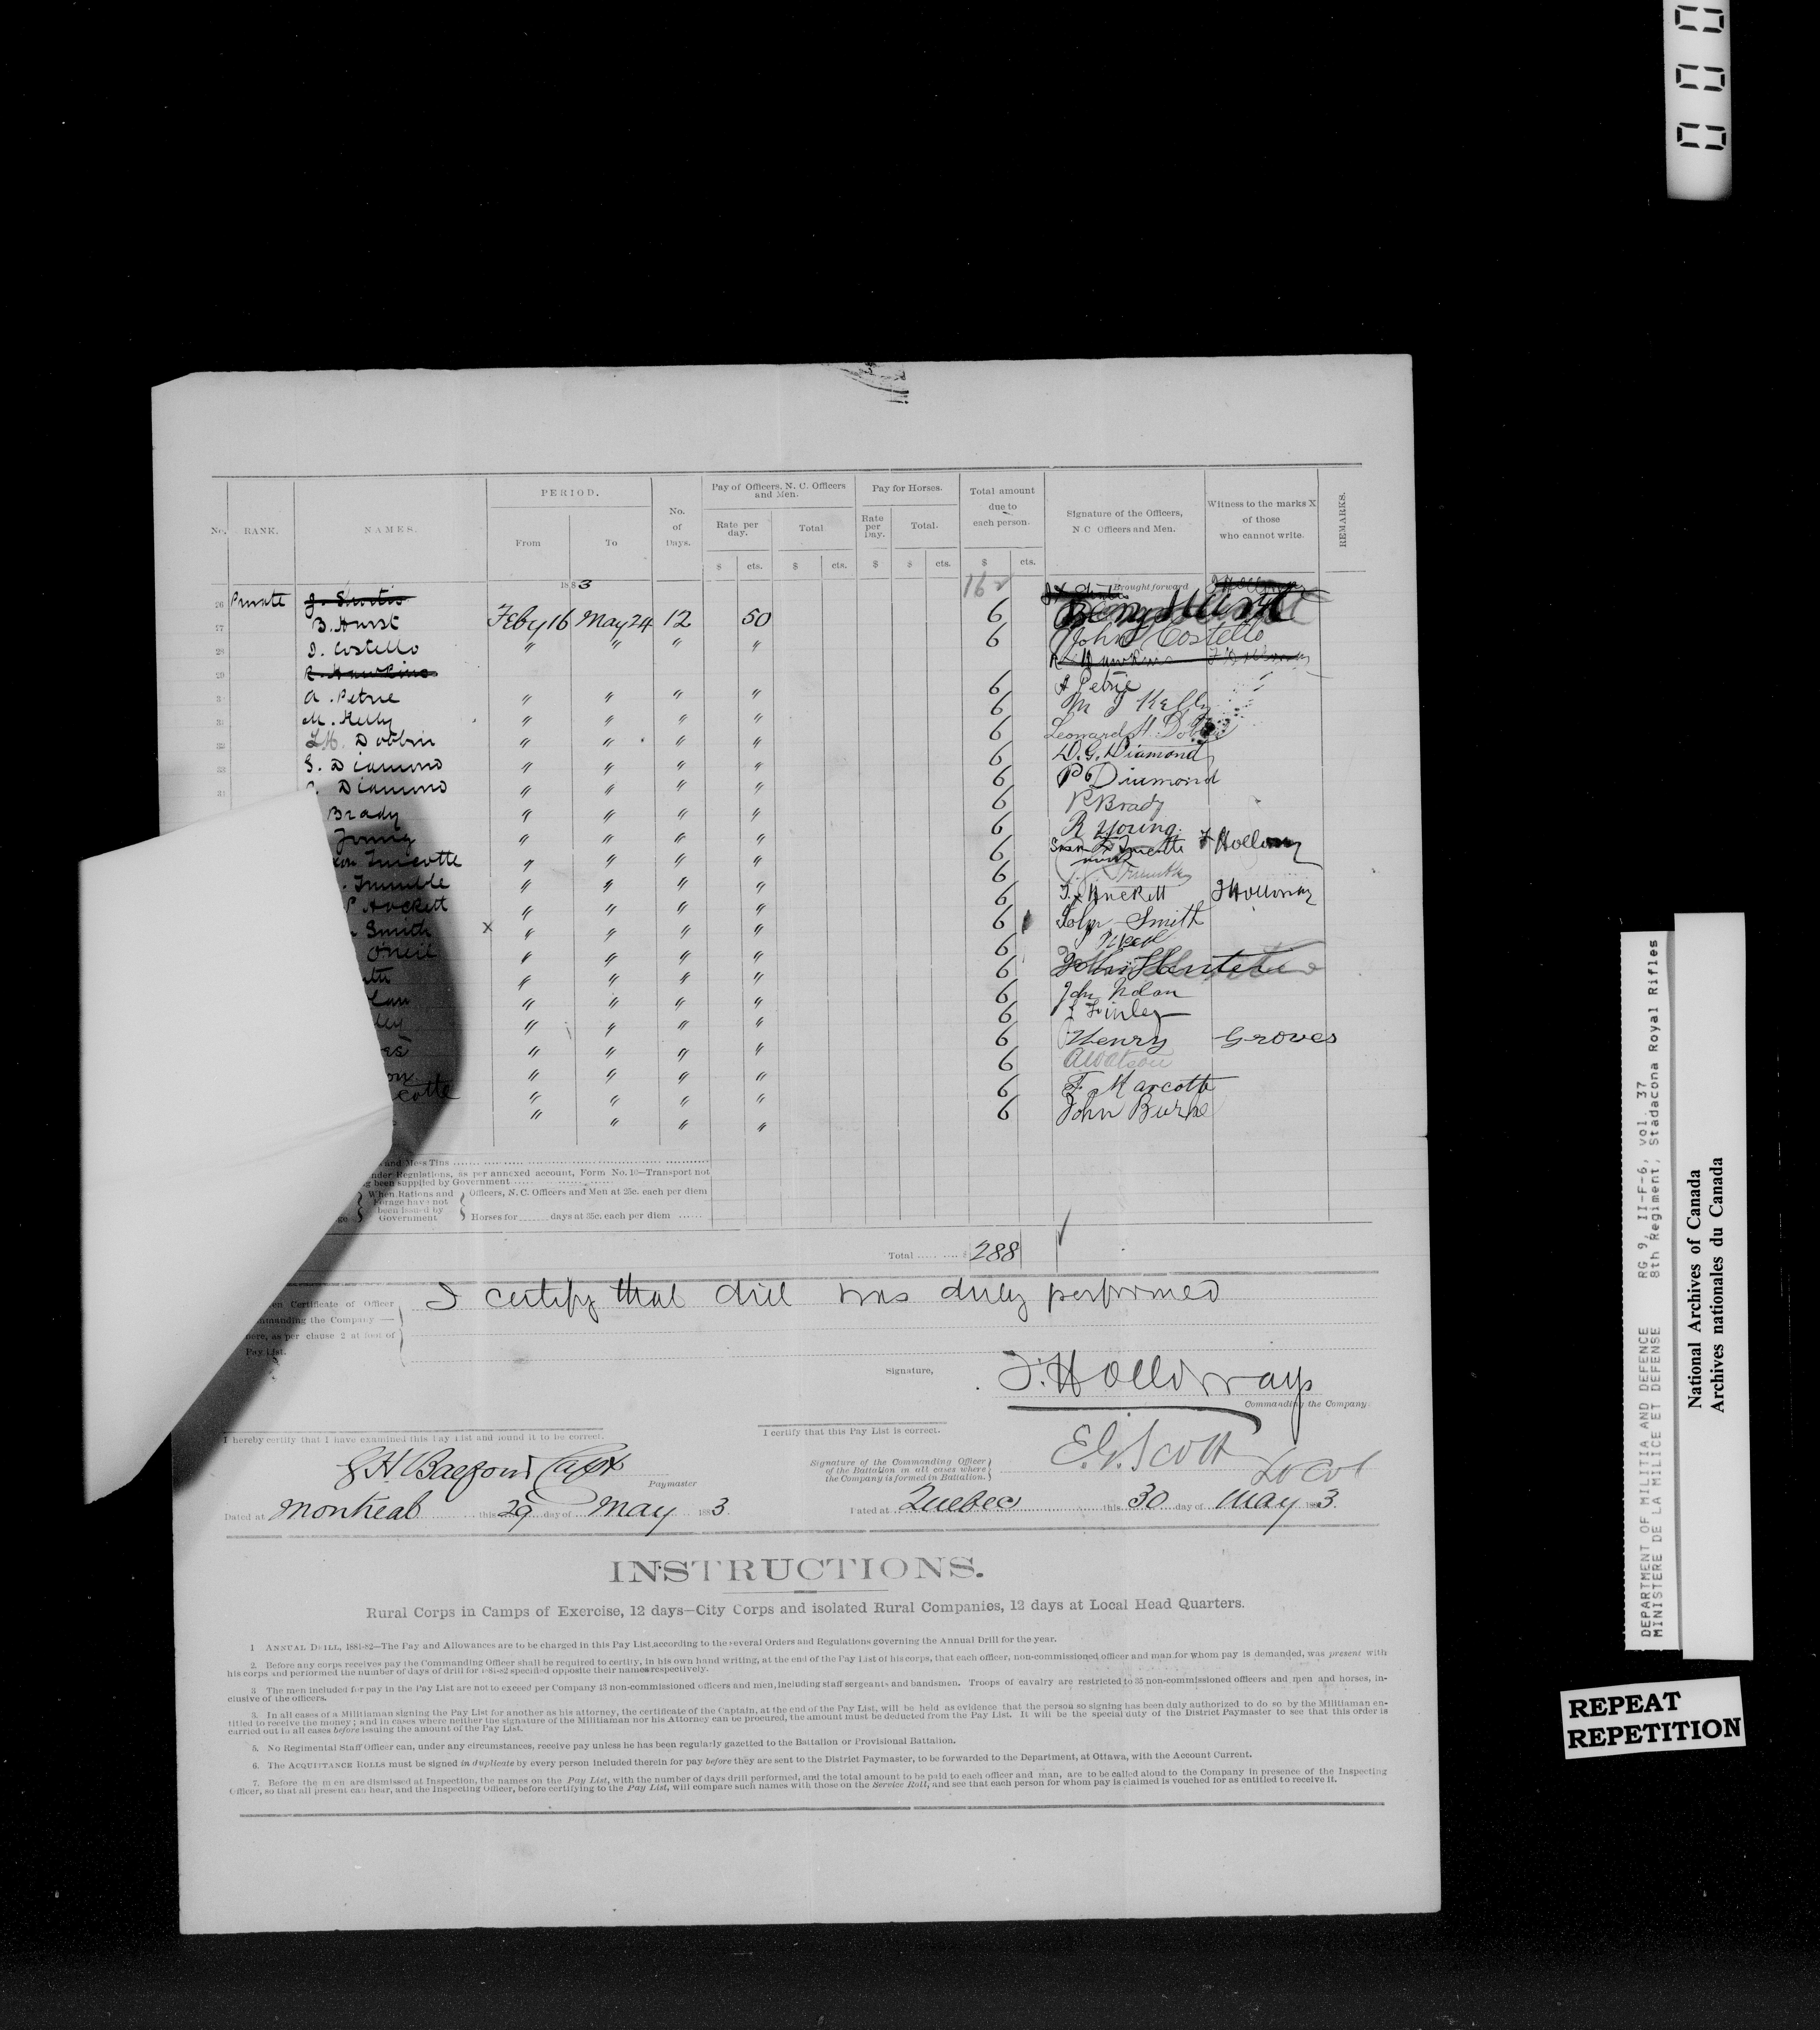 No. RANK. NAMES. PERIOD. From To No. of Days. Pay of Officers, N. C. Officers and Men. Rate per day. Total Pay for Horses. Rate per Day. Total. Total amount due to each person. Signature of the Officers, N C Officers and Men. Witness to the marks X of those who cannot write. REMARKS.
$ cts. $ cts. $ $ cts. $ cts.
1883 162 Brought forward
26 Private
27 B. Hurst Feby 16 May 24 12 50 6
28 J. Costello " " " " 6 John Costello
29 R. Hawkins R Hawkins
A. Petrie " " " " 6 A Petrie
M. Kelly " " " " 6 M J Kelly
32 L.H. Dobbin " " " " 6 Leonard H. Dobbin
33 G. Diamond " " " " 6 D. G. Diamond
34 Diamond " " " " 6 P Diamond
Brady " " " " 6 P Brady
Young " " " " 6 R Young
Turcotte " " " " 6 Turcotte Holloway
Trumble " " " " 6
Hackett " " " " 6 T. x Hackett J Holloway
Smith x " " " " 6 John Smith
O'Neil " " " " 6
" " " " 6
" " " " 6 John Nolan
" " " " 6 Finley
" " " " 6 Henry Groves
" " " " 6 A Watson
cotte " " " " 6 F. Marcotte
" " " " 6 John Burke
and Mess Tins
under Regulations, as per annexed account, Form No. 10—Transport not
been supplied by Government
When Rations and Forage have not been issued by Government
Officers, N. C. Officers and Men at 25c. each per diem
Horses for days at 35c. each per diem
Total $ 288
Certificate of Officer
commanding the Company —
here, as per clause 2 at foot of
Pay List.
I certify that drill was duly performed
Signature, J. Holloway
Commanding the Company.
I hereby certify that I have examined this Pay List and found it to be correct.
I certify that this Pay List is correct.
Paymaster
Signature of the Commanding Officer
of the Battalion in all cases where
the Company is formed in Battalion.
E. G. Scott Lt Col
Dated at Montreal this 29 day of May 1883.
Dated at Quebec this 30 day of May 1883.
INSTRUCTIONS.
Rural Corps in Camps of Exercise, 12 days—City Corps and isolated Rural Companies, 12 days at Local Head Quarters.
1 ANNUAL DRILL, 1881-82—The Pay and Allowances are to be charged in this Pay List, according to the several Orders and Regulations governing the Annual Drill for the year.
2. Before any corps receives pay the Commanding Officer shall be required to certify, in his own hand writing, at the end of the Pay List of his corps, that each officer, non-commissioned officer and man for whom pay is demanded, was present with
his corps and performed the number of days of drill for 1881-82 specified opposite their names respectively.
3 The men included for pay in the Pay List are not to exceed per Company 43 non-commissioned officers and men, including staff sergeants and bandsmen. Troops of cavalry are restricted to 35 non-commissioned officers and men and horses, in-
clusive of the officers.
3. In all cases of a Militiaman signing the Pay List for another as his attorney, the certificate of the Captain, at the end of the Pay List, will be held as evidence that the person so signing has been duly authorized to do so by the Militiaman en-
titled to receive the money; and in cases where neither the signature of the Militiaman nor his Attorney can be procured, the amount must be deducted from the Pay List. It will be the special duty of the District Paymaster to see that this order is
carried out in all cases before issuing the amount of the Pay List.
5. No Regimental Staff Officer can, under any circumstances, receive pay unless he has been regularly gazetted to the Battalion or Provisional Battalion.
6. The ACQUITTANCE ROLLS must be signed in duplicate by every person included therein for pay before they are sent to the District Paymaster, to be forwarded to the Department, at Ottawa, with the Account Current.
7. Before the men are dismissed at Inspection, the names on the Pay List, with the number of days drill performed, and the total amount to be paid to each officer and man, are to be called aloud to the Company in presence of the Inspecting
Officer, so that all present can hear, and the Inspecting Officer, before certifying to the Pay List, will compare such names with those on the Service Roll, and see that each person for whom pay is claimed is vouched for as entitled to receive it.
DEPARTMENT OF MILITIA AND DEFENCE RG 9, II-F-6, vol. 37
MINISTERE DE LA MILICE ET DEFENSE 8th Regiment, Stadacona Royal Rifles
National Archives of Canada
Archives nationales du Canada
REPEAT
REPETITION